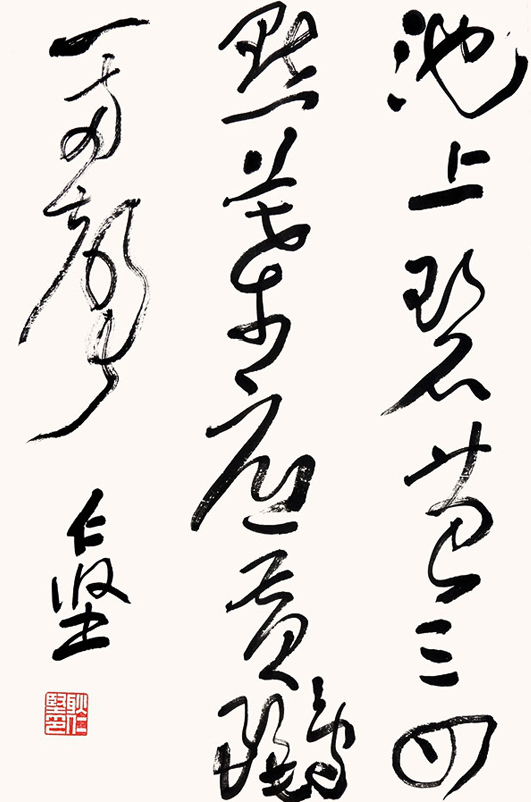 池上碧苔三四
點葉底黃鸝
一兩聲
仁坚
耿仁堅印